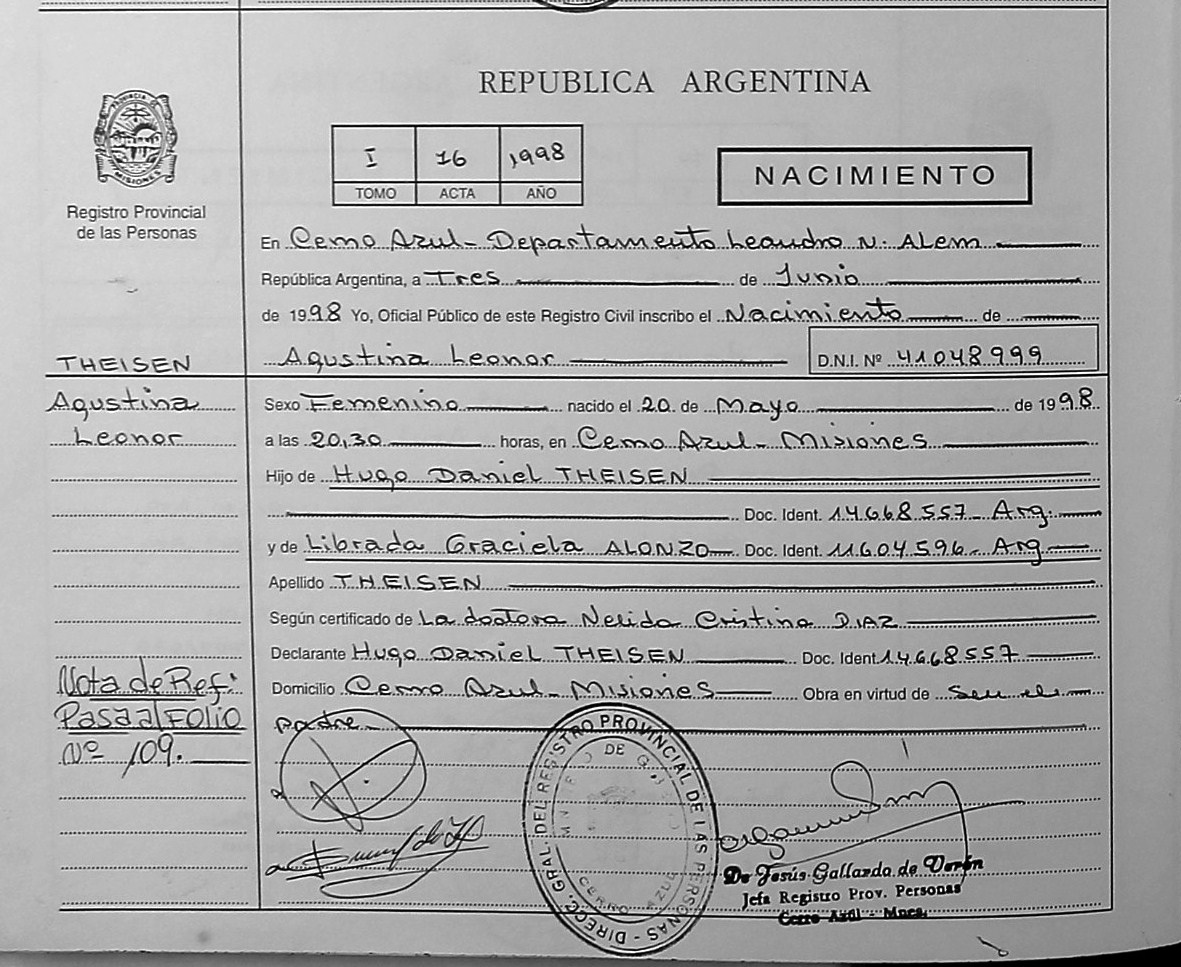 REPUBLICA ARGENTINA
PROVINCIA DE MISIONES
Registro Provincial
de las Personas
I 16 1998
TOMO ACTA AÑO
NACIMIENTO
En Cerro Azul - Departamento Leandro N. ALEM
República Argentina, a Tres de Junio
de 1998 Yo, Oficial Público de este Registro Civil inscribo el Nacimiento de
Agustina Leonor D.N.I. Nº 41048999
THEISEN
Agustina
Leonor
Sexo Femenino nacido el 20 de Mayo de 1998
a las 20,30 horas, en Cerro Azul - Misiones
Hijo de Hugo Daniel THEISEN
Doc. Ident. 14.668.557 - Arg.
y de Librada Graciela ALONZO Doc. Ident. 11.604.596 - Arg
Apellido THEISEN
Según certificado de La doctora Nelida Cristina DIAZ
Declarante Hugo Daniel THEISEN Doc. Ident 14.668.557
Domicilio Cerro Azul - Misiones Obra en virtud de ser el
padre
Nota de Ref:
Pasa al FOLIO
Nº 109.
DIRECC. GRAL. DEL REGISTRO PROVINCIAL DE LAS PERSONAS
CERRO AZUL
De Jesús Gallardo de Verón
Jefa Registro Prov. Personas
Cerro Azul - Mnes.